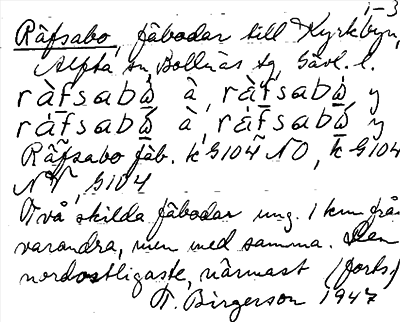 1-3
Räfsabo, fäbodar till Kyrkbyn,
Alfta sn, Bollnäs tg, Gävl. l.
ràfsabὼ à, ràfsabὼ y
ráfsabὼ à, ráfsabὼ y
Räfsabo fäb. k G104 NO, k G104
NV, G104
Två skilda fäbodar ung. 1 km från
varandra, men med samma. Den
nordostligaste, närmast (forts.)
T. Birgerson 1947